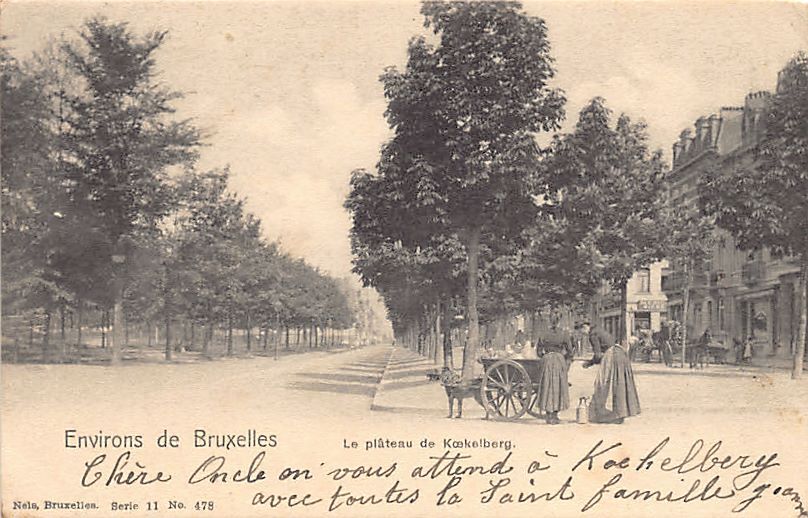 Environs de Bruxelles
Le plâteau de Kœkelberg.
Chère Oncle on vous attend à Kochelbery
avec toutes la Saint famille
Nels, Bruxelles. Serie 11 No. 478